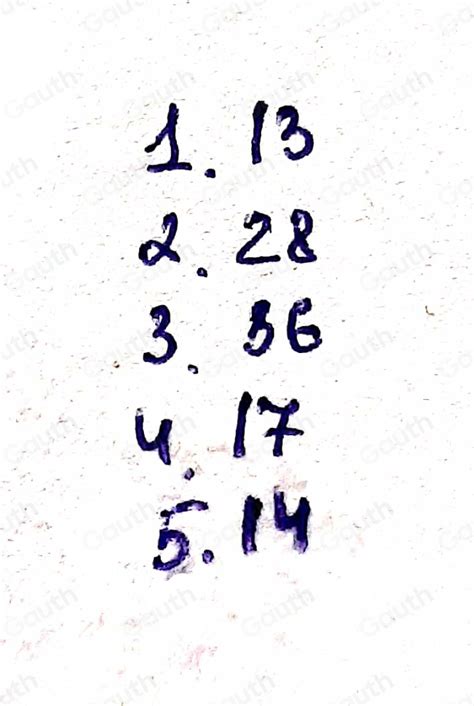 1. 13
2. 28
3. 36
4. 17
5. 14